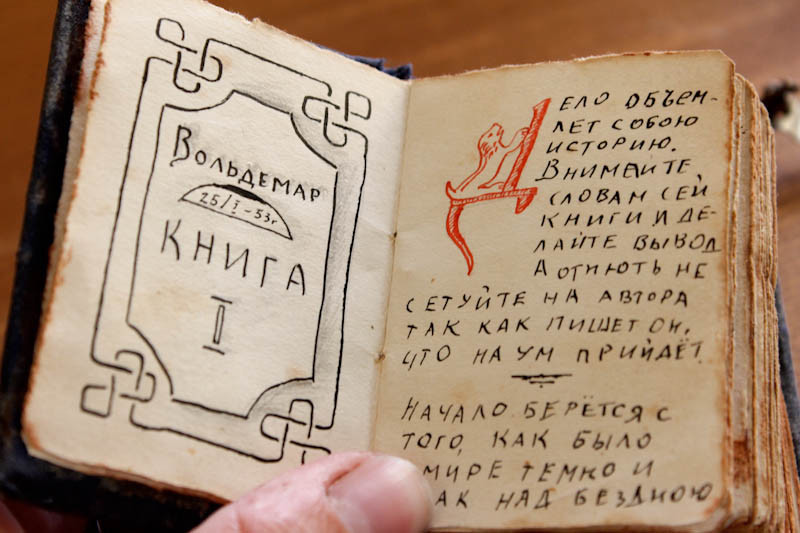 ВОЛЬДЕМАР
25/I-53г
КНИГА
II
ДЕЛО ОБЪЕМ-
ЛЕТ СОБОЮ
ИСТОРИЮ.
ВНИМАЙТЕ
СЛОВАМ СЕЙ
КНИГИ И ДЕ-
ЛАЙТЕ ВЫВОД
А ОТНЮТЬ НЕ
СЕТУЙТЕ НА АВТОРА
ТАК КАК ПИШЕТ ОН,
ЧТО НА УМ ПРИЙДЁТ.
НАЧАЛО БЕРЁТСЯ С
ТОГО, КАК БЫЛО
МИРЕ ТЕМНО И
АК НАД БЕЗДНОЮ